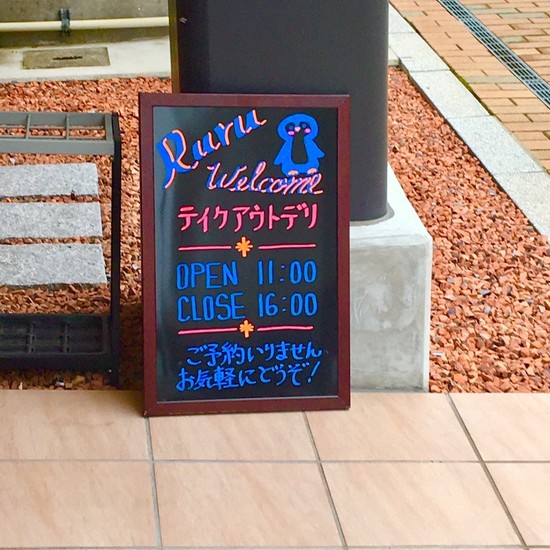 Ruru
Welcome
テイクアウトデリ
OPEN 11:00
CLOSE 16:00
ご予約いりません
お気軽にどうぞ!